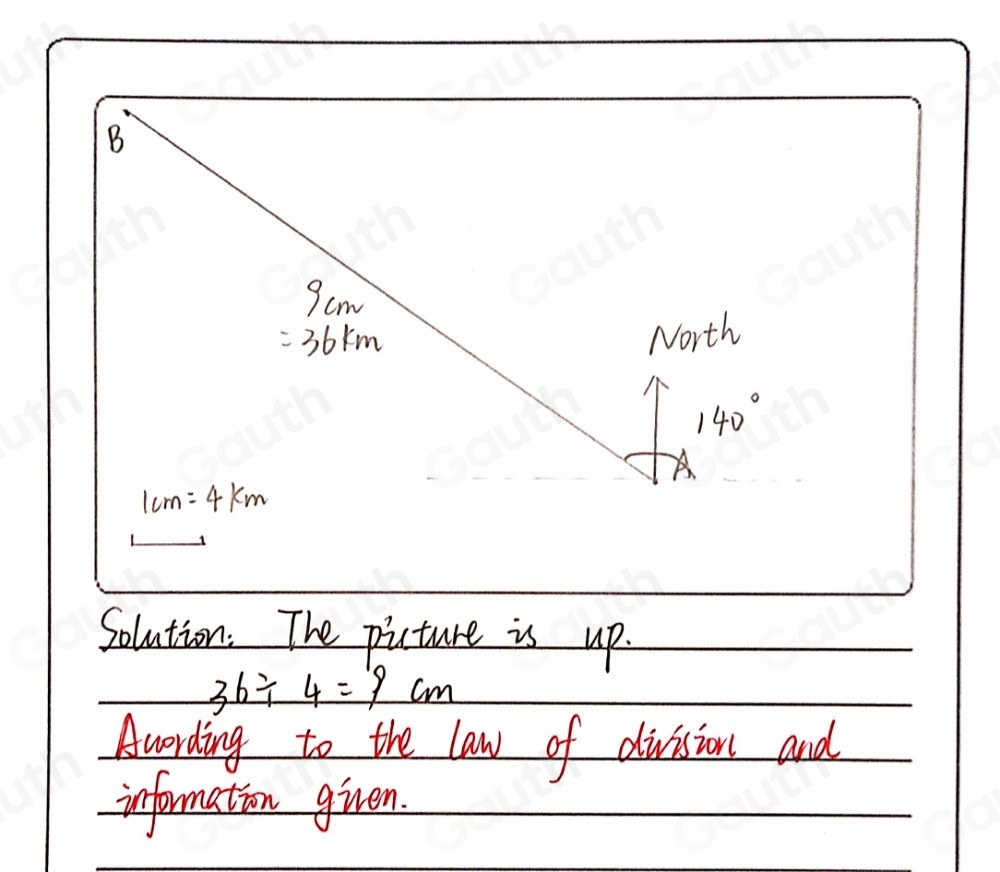 B
9cm
= 36km
North
140°
A
1cm = 4 km
Solution: The picture is up.
36 ÷ 4 = 9 cm
Auording to the law of division and
information given.
Gauth